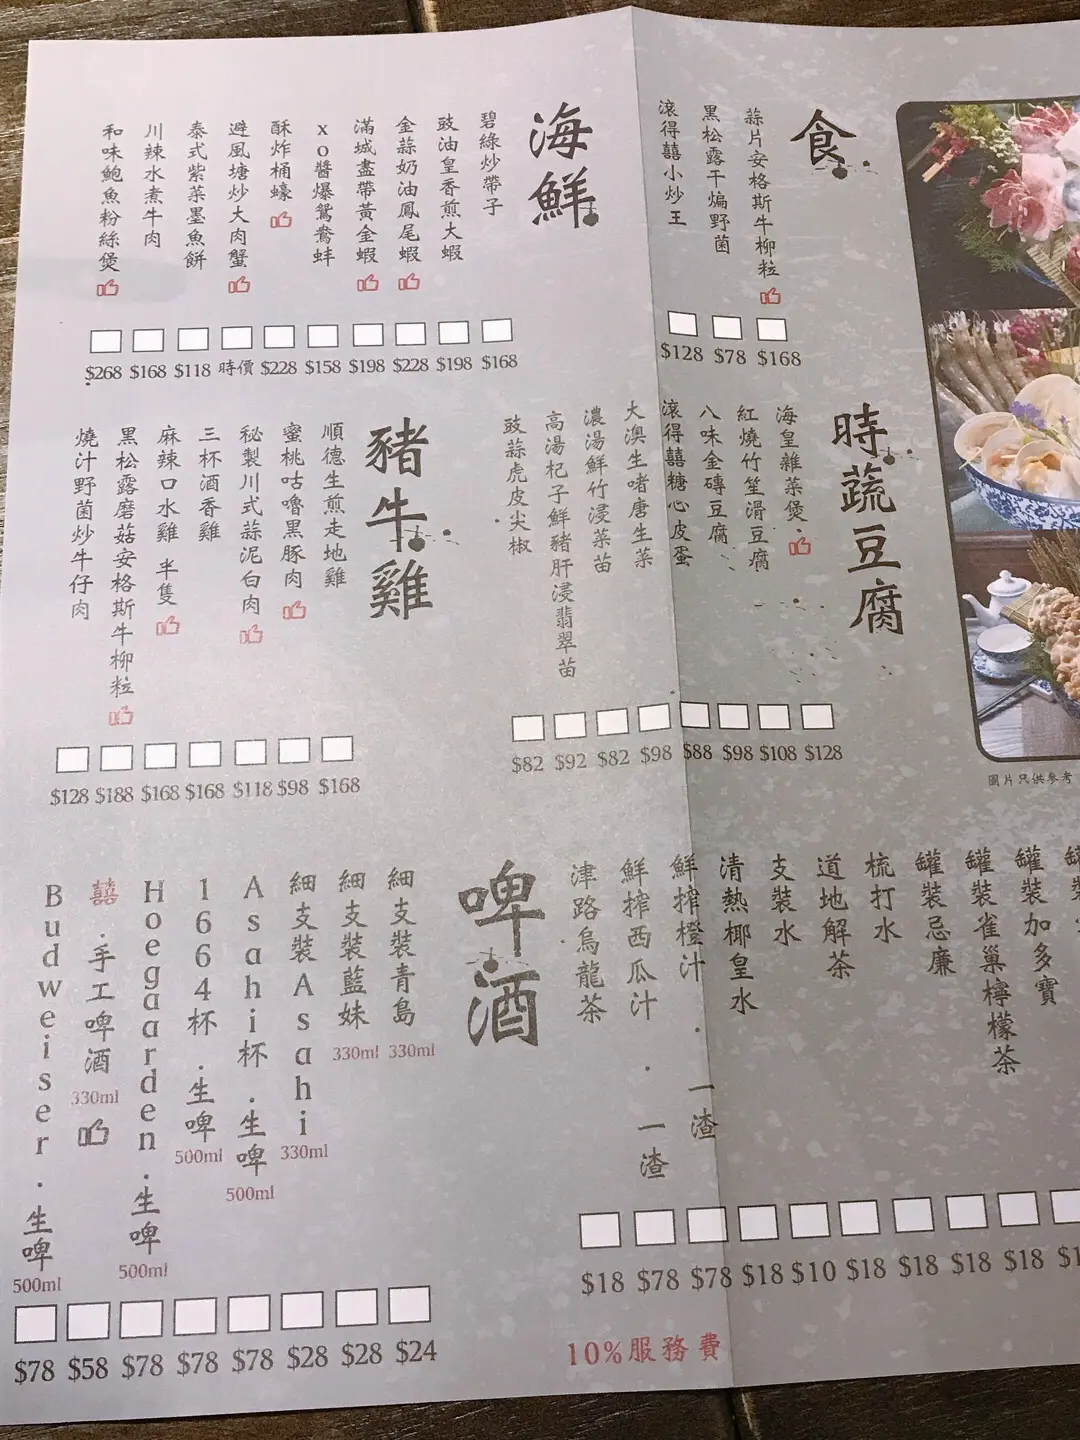 食
蒜片安格斯牛柳粒
黑松露干煸野菌
滾得囍小炒王
$128 $78 $168
海鮮
碧綠炒帶子
豉油皇香煎大蝦
金蒜奶油鳳尾蝦
滿城盡帶黃金蝦
xo醬爆鴛鴦蚌
酥炸桶蠔
避風塘炒大肉蟹
泰式紫菜墨魚餅
川辣水煮牛肉
和味鮑魚粉絲煲
$268 $168 $118 時價 $228 $158 $198 $228 $198 $168
時蔬豆腐
海皇雜菜煲
紅燒竹笙滑豆腐
八味金磚豆腐
滾得囍糖心皮蛋
大澳生啫唐生菜
濃湯鮮竹浸菜苗
高湯杞子鮮豬肝浸翡翠苗
豉蒜虎皮尖椒
$82 $92 $82 $98 $88 $98 $108 $128
豬牛雞
順德生煎走地雞
蜜桃咕嚕黑豚肉
秘製川式蒜泥白肉
三杯酒香雞
麻辣口水雞 半隻
黑松露磨菇安格斯牛柳粒
燒汁野菌炒牛仔肉
$128 $188 $168 $168 $118 $98 $168
圖片只供參考
罐裝加多寶
罐裝雀巢檸檬茶
罐裝忌廉
梳打水
道地解茶
支裝水
清熱椰皇水
鮮搾橙汁．一渣
鮮搾西瓜汁．一渣
津路烏龍茶
$18 $78 $78 $18 $10 $18 $18 $18 $18
啤酒
細支裝青島 330ml
細支裝藍妹 330ml
細支裝Asahi 330ml
Asahi杯．生啤 500ml
1664杯．生啤 500ml
Hoegaarden．生啤 500ml
囍．手工啤酒 330ml
Budweiser．生啤 500ml
$78 $58 $78 $78 $78 $28 $28 $24
10%服務費